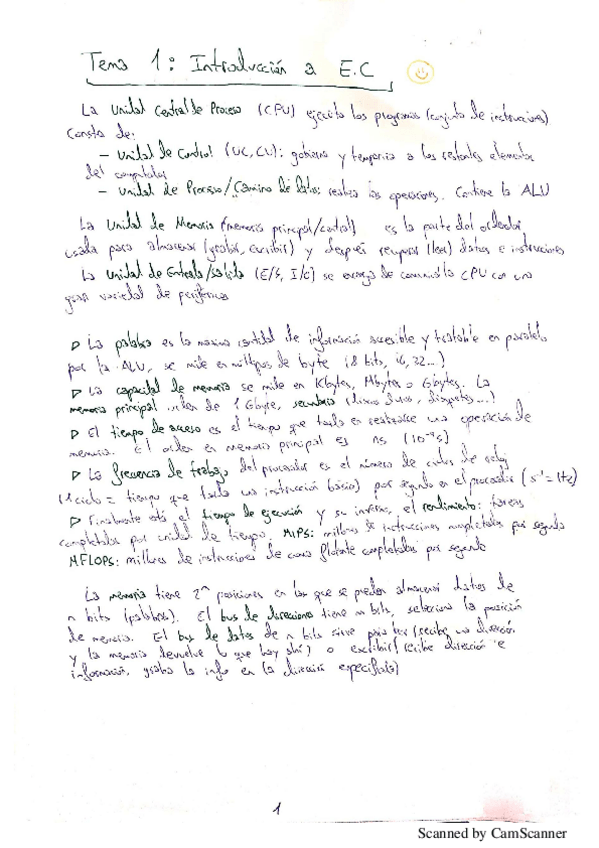 Tema 1: Introducción a E.C
La Unidad Central de Proceso (CPU) ejecuta los programas (conjunto de instrucciones)
Consta de:
- Unidad de Control (UC, CU): gobierna y temporiza a los restantes elementos
del computador
- Unidad de Proceso/Camino de Datos: realiza las operaciones. Contiene la ALU
La Unidad de Memoria (memoria principal/central) es la parte del ordenador
usada para almacenar (grabar, escribir) y después recuperar (leer) datos e instrucciones
La Unidad de Entrada/Salida (E/S, I/O) se encarga de comunicar la CPU con una
gran variedad de periféricos
▷ La palabra es la maxima cantidad de información accesible y tratable en paralelo
por la ALU, se mide en múltiplos de byte (8 bits, 16, 32...)
▷ La capacidad de memoria se mide en Kbytes, Mbytes o Gbytes. La
memoria principal de 1 Gbyte, secundaria (discos duros, disquetes...)
▷ El tiempo de acceso es el tiempo que tarda en realizarse una operación de
memoria. El orden en memoria principal es ns (10⁻⁹s)
▷ La frecuencia de trabajo del procesador es el número de ciclos de reloj
(1 ciclo = tiempo que tarda una instrucción básica) por segundo en el procesador (s⁻¹ = Hz)
▷ Finalmente está el tiempo de ejecución y su inverso, el rendimiento: tareas
completadas por unidad de tiempo. MIPS: millones de instrucciones completadas por segundo
MFLOPS: millones de instrucciones de coma flotante completadas por segundo
La memoria tiene 2^ posiciones en las que se pueden almacenar datos de
n bits (palabras). El bus de direcciones tiene bits, selecciona la posición
de memoria. El bus de datos de n bits sirve para leer (recibe una dirección
y la memoria devuelve lo que hay ahí) o escribir (recibe dirección e
información, graba la info en la dirección especificada)
1
Scanned by CamScanner